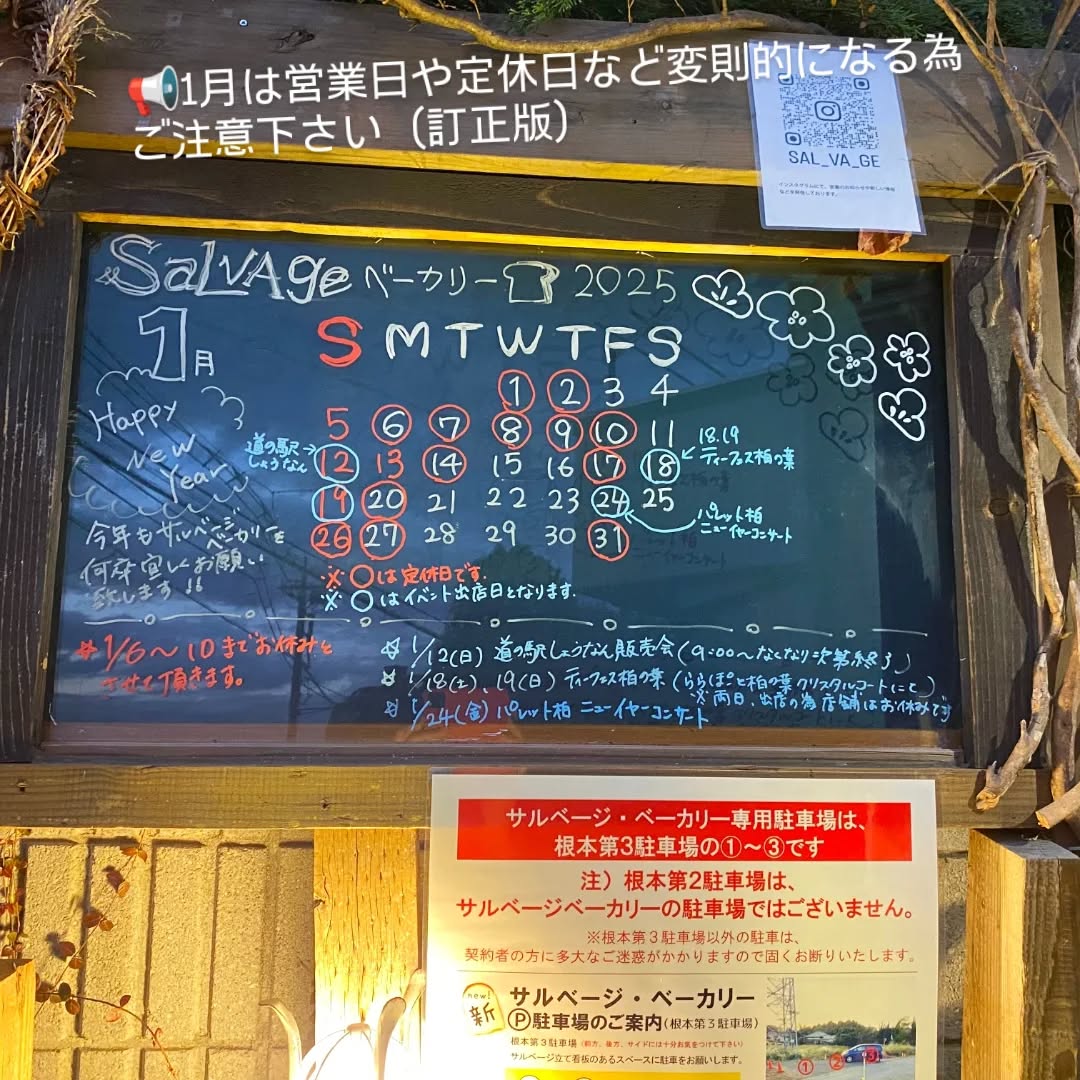 📢1月は営業日や定休日など変則的になる為
ご注意下さい（訂正版）
SAL_VA_GE
インスタグラムにて、営業のお知らせや新しい情報
などを発信しております。
SALVAge ベーカリー 2025
1月
S M T W T F S
1 2 3 4
5 6 7 8 9 10 11
12 13 14 15 16 17 18
19 20 21 22 23 24 25
26 27 28 29 30 31
道の駅→
しょうなん
18.19
ティーフェス柏の葉
パレット柏
ニューイヤーコンサート
Happy
New
Year
今年もサルベージ
ベーカリーを
何卒宜しくお願い
致します!!
※○は定休日です.
※○はイベント出店日となります.
※1/6〜10までお休みと
させて頂きます。
☆1/12(日) 道の駅しょうなん販売会(9:00〜なくなり次第終了)
☆1/18(土)、19(日) ティーフェス柏の葉(ららぽーと柏の葉クリスタルコートにて)
※両日、出店の為店舗はお休みです
☆1/24(金) パレット柏 ニューイヤーコンサート
サルベージ・ベーカリー専用駐車場は、
根本第3駐車場の①〜③です
注）根本第2駐車場は、
サルベージベーカリーの駐車場ではございません。
※根本第３駐車場以外の駐車は、
契約者の方に多大なご迷惑がかかりますので固くお断りいたします。
new!
新
サルベージ・ベーカリー
Ⓟ駐車場のご案内(根本第３駐車場)
根本第３駐車場（前方、後方、サイドには十分お気をつけて下さい）
サルベージ立て看板のあるスペースに駐車をお願いします。
① ② ③